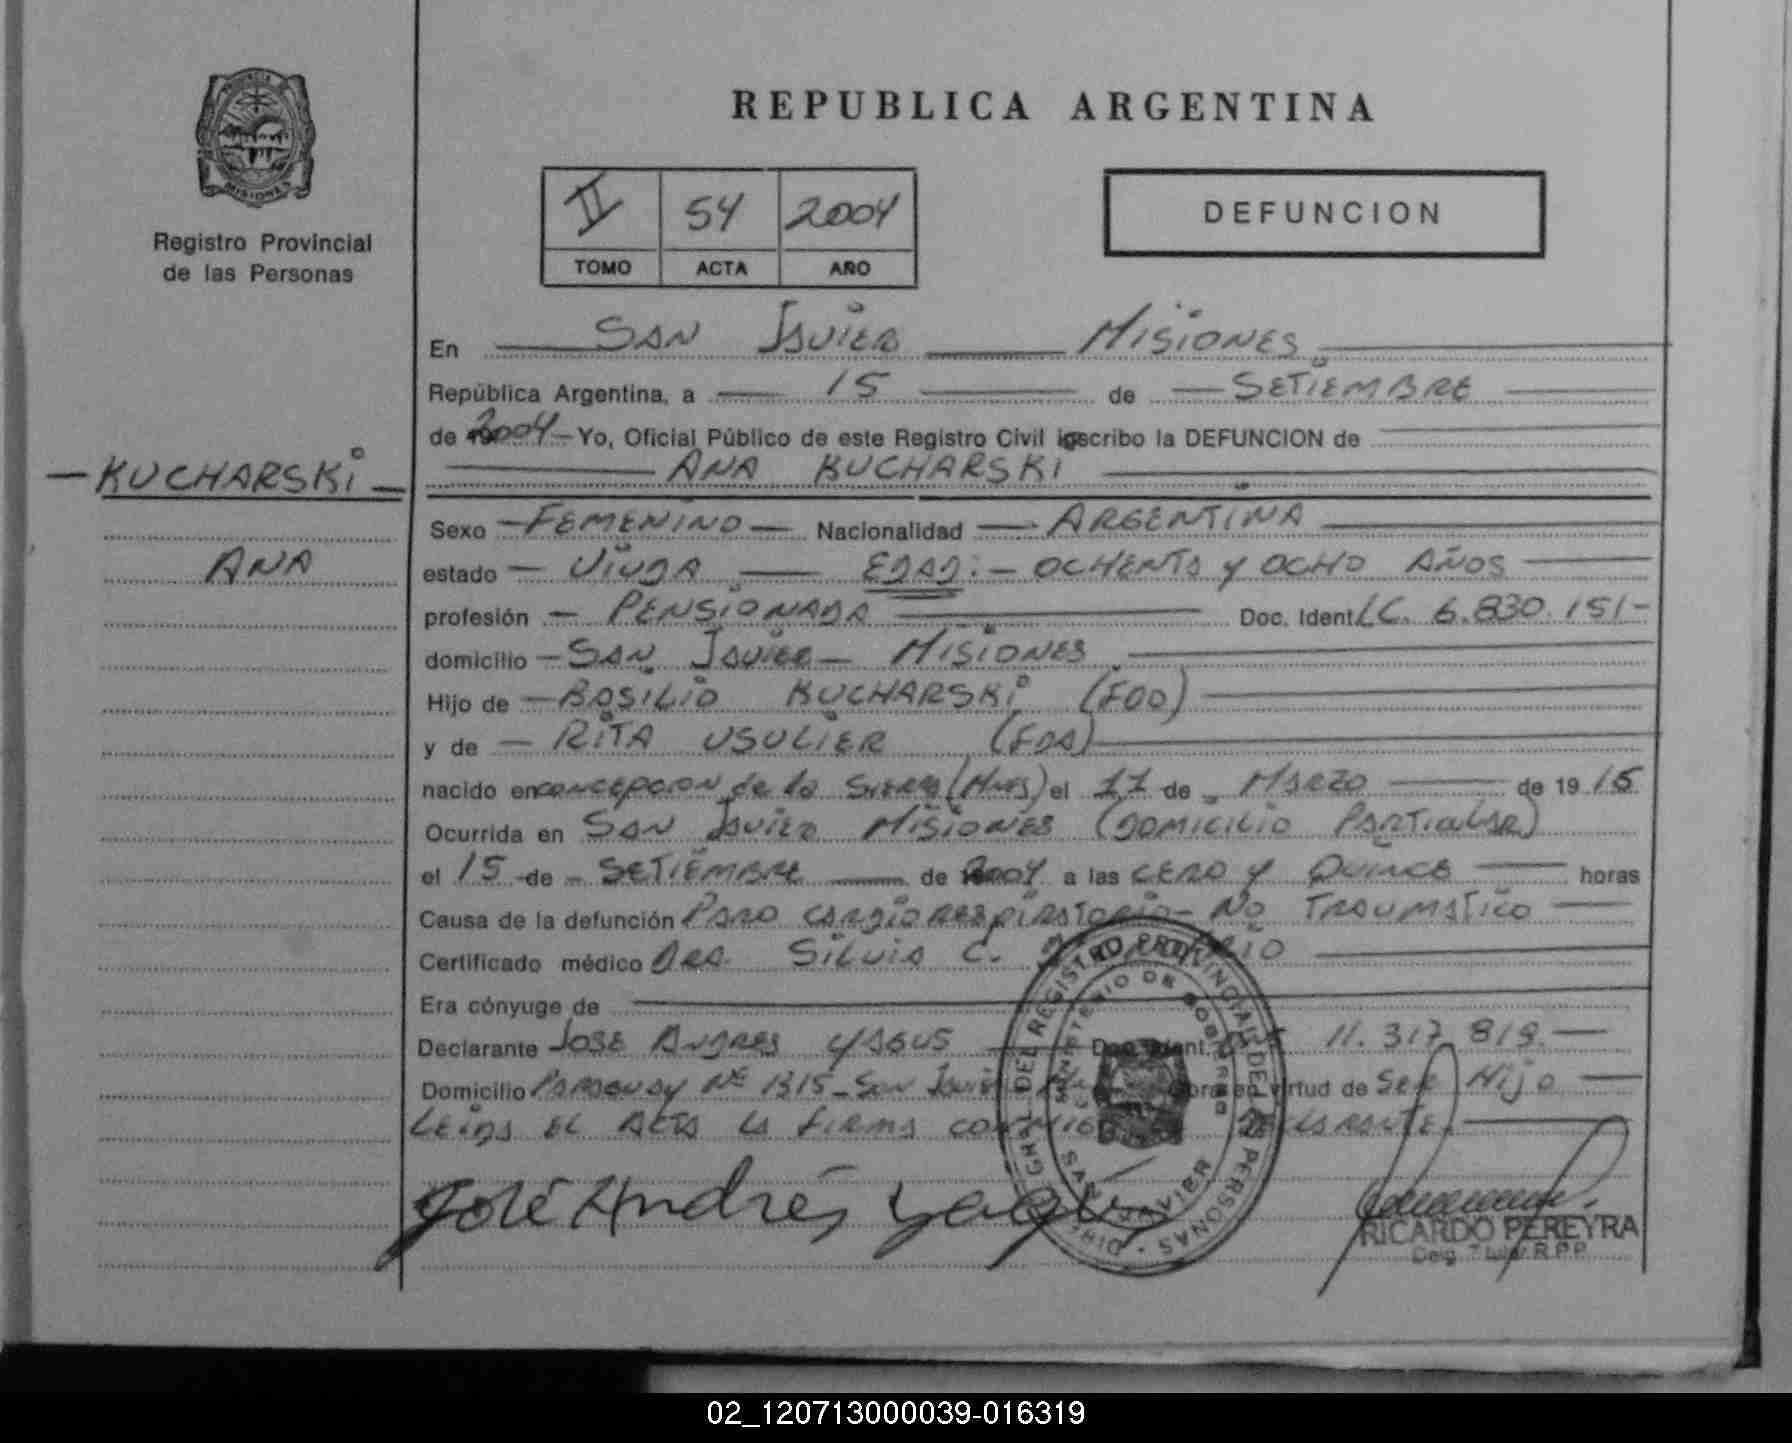 REPUBLICA ARGENTINA
PROVINCIA DE
MISIONES
Registro Provincial
de las Personas
II 54 2004
TOMO ACTA AÑO
DEFUNCION
En SAN JAVIER MISIONES
República Argentina, a 15 de SETIEMBRE
de 2004 - Yo, Oficial Público de este Registro Civil inscribo la DEFUNCION de
ANA KUCHARSKI
- KUCHARSKI -
ANA
Sexo - FEMENINO - Nacionalidad - ARGENTINA
estado - VIUDA - EDAD: - OCHENTA y OCHO AÑOS
profesión - PENSIONADA Doc. Ident. LC. 6.830.151-
domicilio - SAN JAVIER - MISIONES
Hijo de - BASILIO KUCHARSKI (FDO)
y de - RITA USULIER (FDA)
nacido en concepcion de la Sierra (Mnes) el 11 de MARZO de 19 16
Ocurrida en SAN JAVIER MISIONES (DOMICILIO PARTICULAR)
el 15 de - SETIEMBRE de 2004 a las CERO y QUINCE horas
Causa de la defunción PARO CARDIORESPIRATORIO - NO TRAUMATICO
Certificado médico DRA. SILVIA C.
Era cónyuge de
Declarante JOSE ANDRES YAGUS Doc. Ident. 11.317.819.-
Domicilio PARAGUAY Nº 1315 - San Javier obra en virtud de Ser Hijo
LEIDA EL ACTA LA FIRMA CONMIGO EL DECLARANTE.
José Andrés Yagus
DIR. GRAL. DEL REGISTRO PROVINCIAL DE LAS PERSONAS
MINISTERIO DE GOBIERNO
SAN JAVIER
RICARDO PEREYRA
Deleg. Titular R.P.P.
02_120713000039-016319